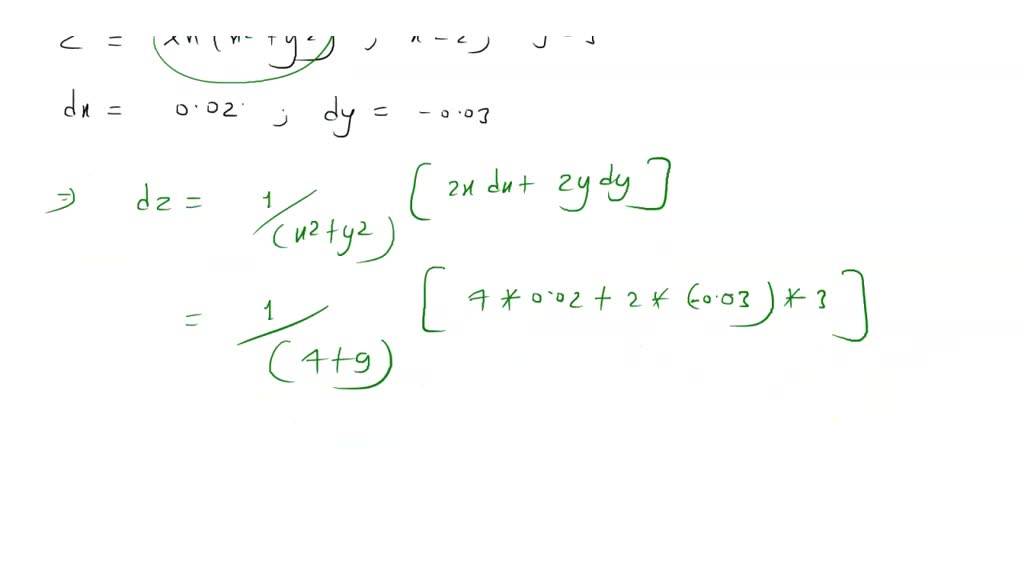 z = ln(x2+y2) ; x=2, y=3
dx = 0.02 ; dy = -0.03
⇒ dz = 1/(x2+y2) [2x dx + 2y dy]
= 1/(4+9) [4 * 0.02 + 2 * (-0.03) * 3]